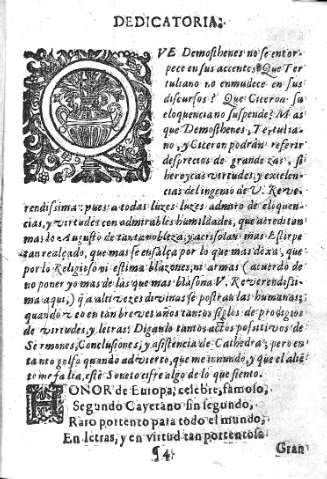 DEDICATORIA:
QVE Demosthenes no se entor-
pece en sus accentos? Que Ter-
tuliano no enmudece en sus
discursos? Que Ciceron su
eloquencia no suspende? Mas
que Demosthenes, Tertulia-
no, y Ciceron podràn referir
desprecios de grandezas, si
heroycas virtudes, y exelen-
cias del ingenio de V. Reve-
rendissima: pues a todas luzes luzes admiro de eloquen-
cias, y virtudes con admirables humildades, que acreditan
mas lo Augusto de tanta nobleza, y acrisolan mas Estirpe
tan realçado, que mas se ensalça por lo que mas dexa, que
por lo Religioso ni estima blazones, ni armas (acuerdo de
no poner yo mas de las que mas blasona V. Reverendissi-
ma aqui,) q̃ a altivezes divinas se postran las humanas;
quando veo en tan breves años tantos siglos de prodigios
de virtudes, y letras: Diganlo tantos actos positivos de
Sermones, Conclusiones, y asistencia de Cathedra; pero en
tanto golfo quando advierto, que me inundo, y que el alie-
to me falta, este Soneto cifre algo de lo que siento.
HONOR de Europa, celebre, famoso,
Segundo Cayetano sin segundo,
Raro portento para todo el mundo,
En letras, y en virtud tan portentoso
¶4 Gran